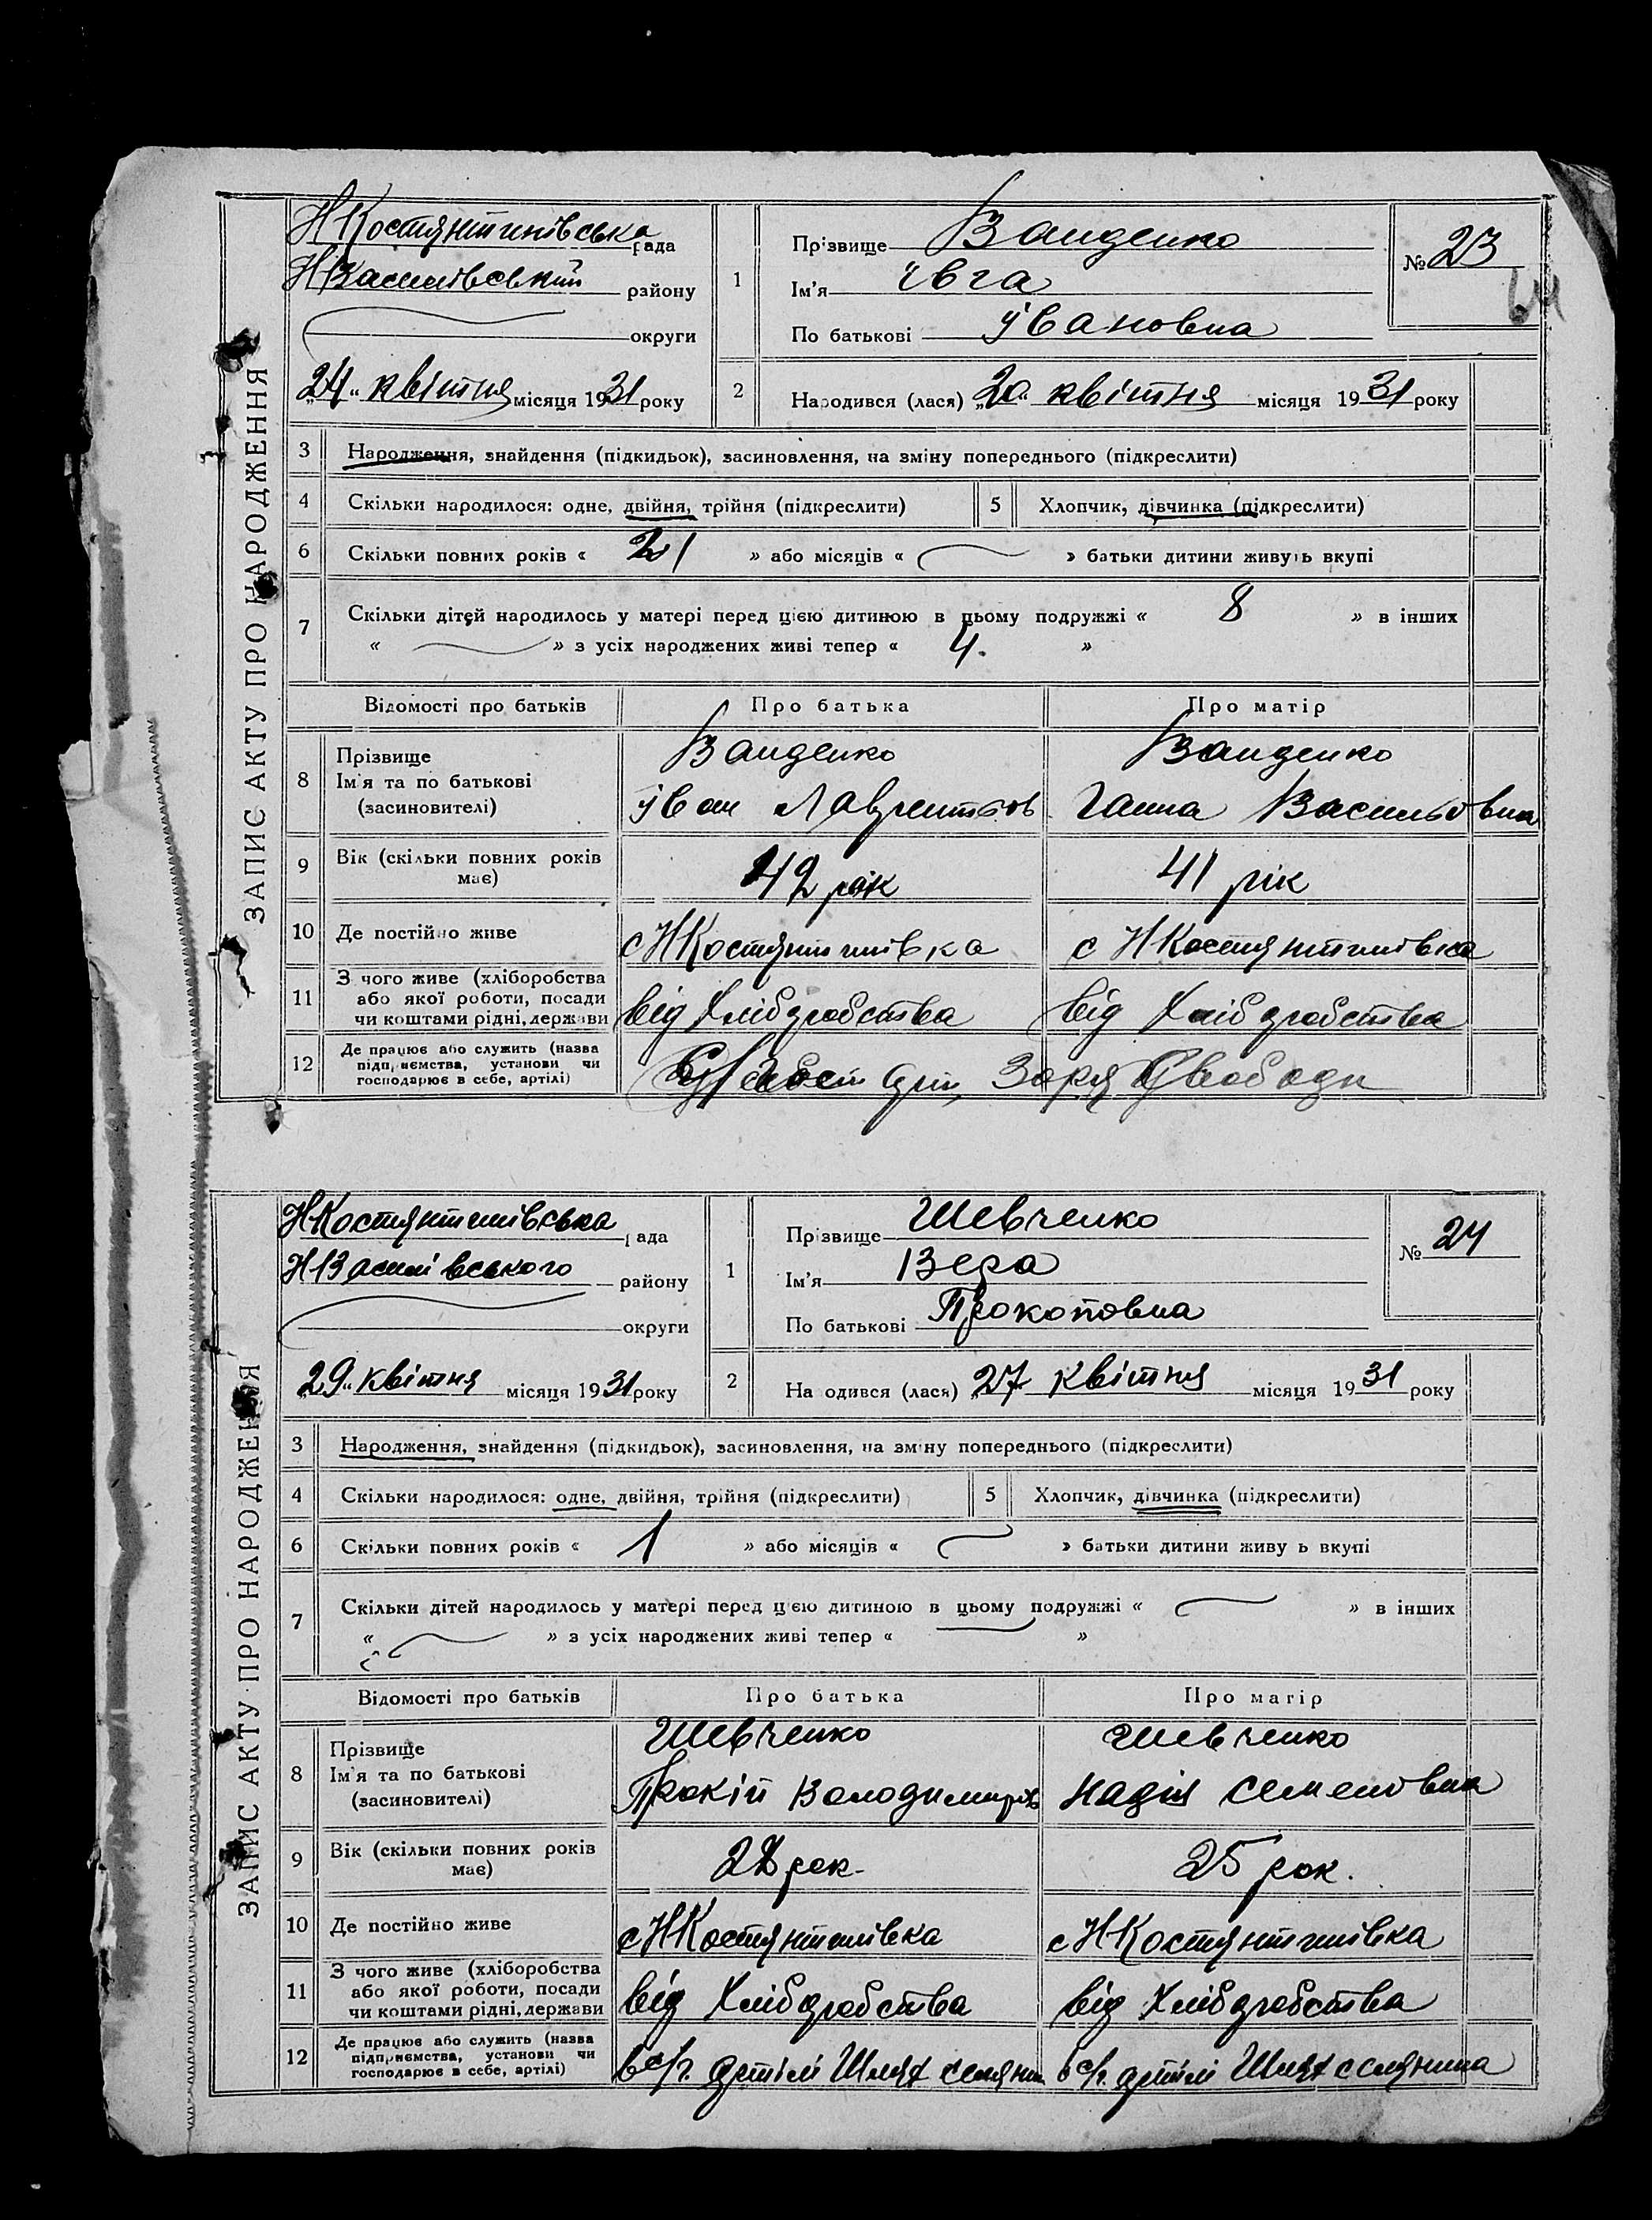 ЗАПИС АКТУ ПРО НАРОДЖЕННЯ
НКостянтинівська рада
НВасилівський району
округи
„24“ квітня місяця 1931 року
1
Прізвище Ванденко
Ім'я Ївга
По батькові Івановна
№ 23
64
2
Народився (лася) „20 квітня місяця 1931 року
3 Народження, знайдення (підкидьок), засиновлення, на зміну попереднього (підкреслити)
4 Скільки народилося: одне, двійня, трійня (підкреслити) 5 Хлопчик, дівчинка (підкреслити)
6 Скільки повних років « 21 » або місяців « » батьки дитини живуть вкупі
7 Скільки дітей народилось у матері перед цією дитиною в цьому подружжі « 8 » в інших
« » з усіх народжених живі тепер « 4. »
Відомості про батьків Про батька Про матір
8 Прізвище
Ім'я та по батькові
(засиновителі)
Ванденко
Іван Лаврентьов
Ванденко
Ганна Васильовна
9 Вік (скільки повних років має)
42 рік
41 рік
10 Де постійно живе
с НКостянтинівка
с НКостянтинівка
11 З чого живе (хліборобства
або якої роботи, посади
чи коштами рідні, держави
від Хліборобства
від Хліборобства
12 Де працює або служить (назва
підприємства, установи чи
господарює в себе, артілі)
арт, Заря Свободи
ЗАПИС АКТУ ПРО НАРОДЖЕННЯ
НКостянтинівська рада
НВасилівського району
округи
„29“ квітня місяця 1931 року
1
Прізвище Шевченко
Ім'я Вера
По батькові Прокоповна
№ 24
2
Народився (лася) „27 квітня місяця 1931 року
3 Народження, знайдення (підкидьок), засиновлення, на зміну попереднього (підкреслити)
4 Скільки народилося: одне, двійня, трійня (підкреслити) 5 Хлопчик, дівчинка (підкреслити)
6 Скільки повних років « 1 » або місяців « » батьки дитини живу ь вкупі
7 Скільки дітей народилось у матері перед цією дитиною в цьому подружжі « » в інших
« » з усіх народжених живі тепер « »
Відомості про батьків Про батька Про матір
8 Прізвище
Ім'я та по батькові
(засиновителі)
Шевченко
Прокіп Володимиров
Шевченко
Надія Семеновна
9 Вік (скільки повних років має)
28 рок.
25 рок.
10 Де постійно живе
с НКостянтинівка
с НКостянтинівка
11 З чого живе (хліборобства
або якої роботи, посади
чи коштами рідні, держави
від Хліборобства
від Хліборобства
12 Де працює або служить (назва
підприємства, установи чи
господарює в себе, артілі)
в с/г. артілі Шлях селянин
в с/г. артілі Шлях селянина